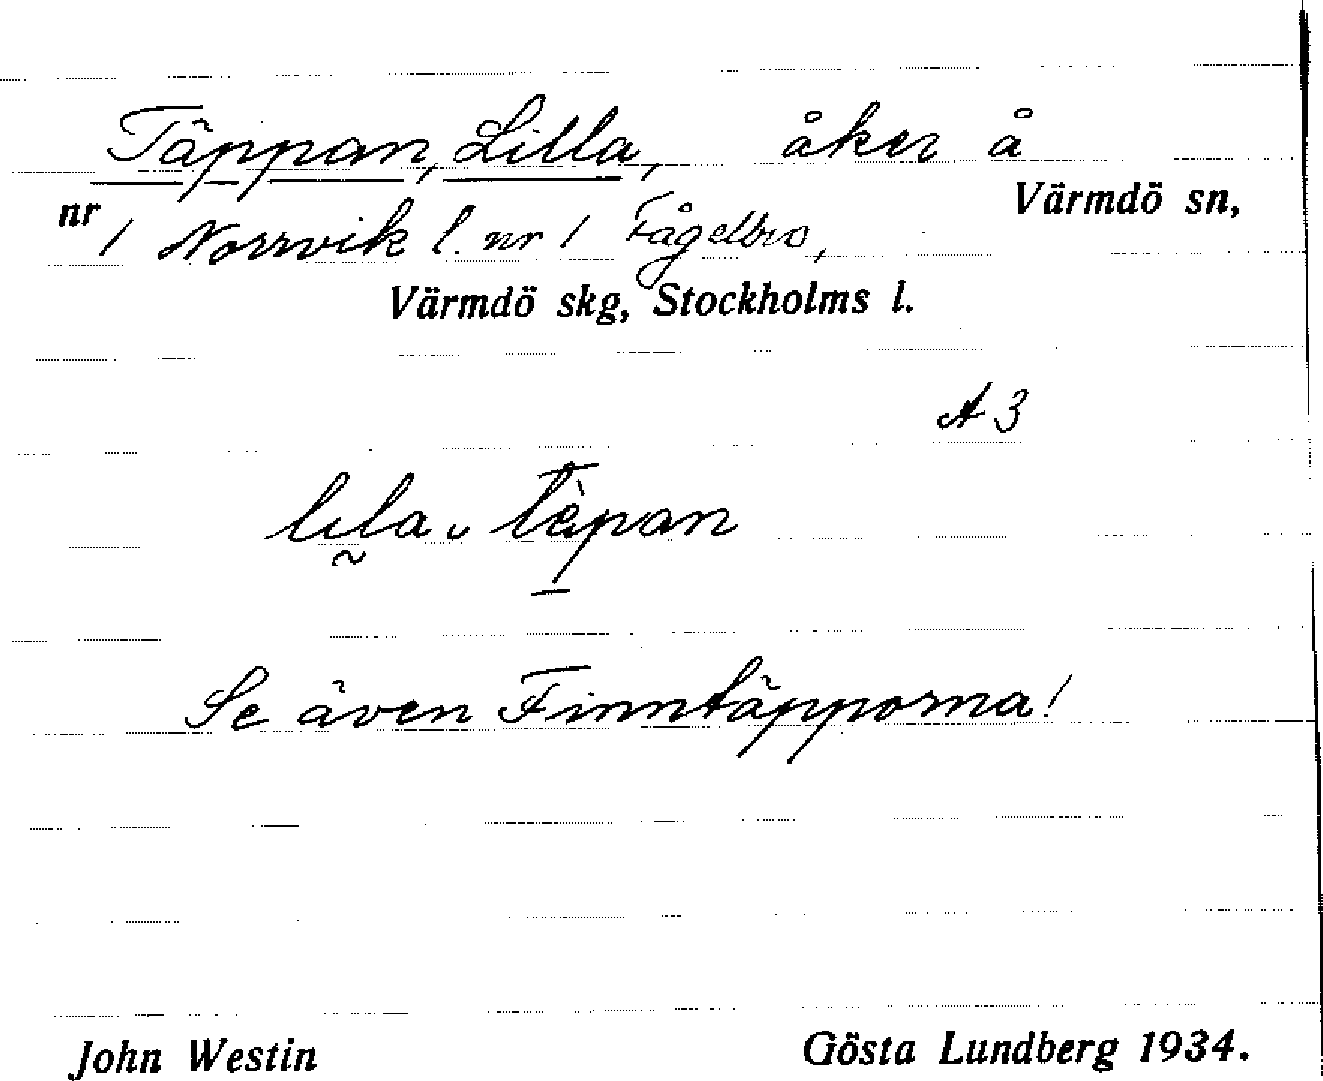 Täppan, Lilla, åker å
nr 1 Norrvik l. nr 1 Fågelbro, Värmdö sn,
Värmdö skg, Stockholms l.
A 3
lila täpan
Se även Finntäpporna!
John Westin Gösta Lundberg 1934.